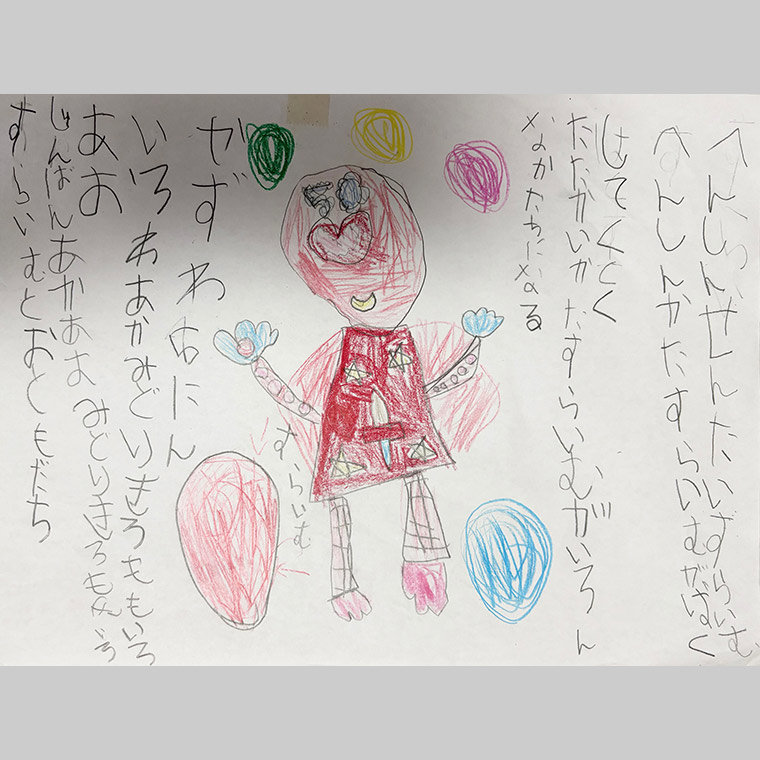 へんしんせんたいすらいむ
へんしんかたすらいむがはく
たたかいかたすらいむがいろん
なかたちになる
かずわ5にん
いろわあかみどりきろももいろ
あお
じんばんあかあおみどりきろももいろ
すらいむとおともだち
すらいむ